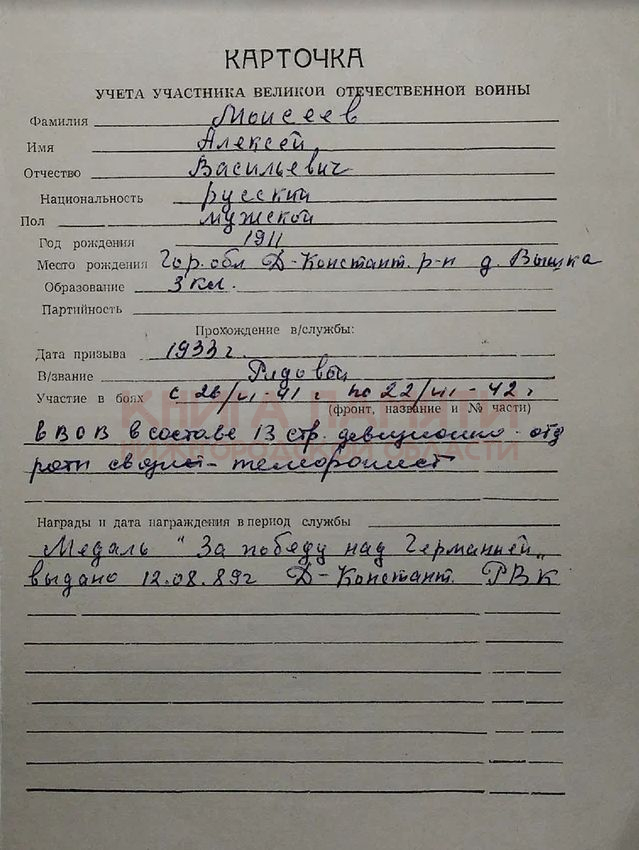 КАРТОЧКА
УЧЕТА УЧАСТНИКА ВЕЛИКОЙ ОТЕЧЕСТВЕННОЙ ВОЙНЫ
Фамилия Моисеев
Имя Алексей
Отчество Васильевич
Национальность русский
Пол мужской
Год рождения 1911
Место рождения Гор. обл Д-Констант. р-н д. Вышка
Образование 3 кл.
Партийность
Прохождение в/службы:
Дата призыва 1933 г.
В/звание Рядовой
Участие в боях с 26/VI-41 г. по 22/VIII-42 г
(фронт, название и № части)
в ВОВ в составе 13 стр. отд
роты связист-
Награды и дата награждения в период службы
Медаль "За победу над Германией"
выдано 12.08.89г Д-Констант. РВК
КНИГА ПАМЯТИ
НИЖЕГОРОДСКОЙ ОБЛАСТИ